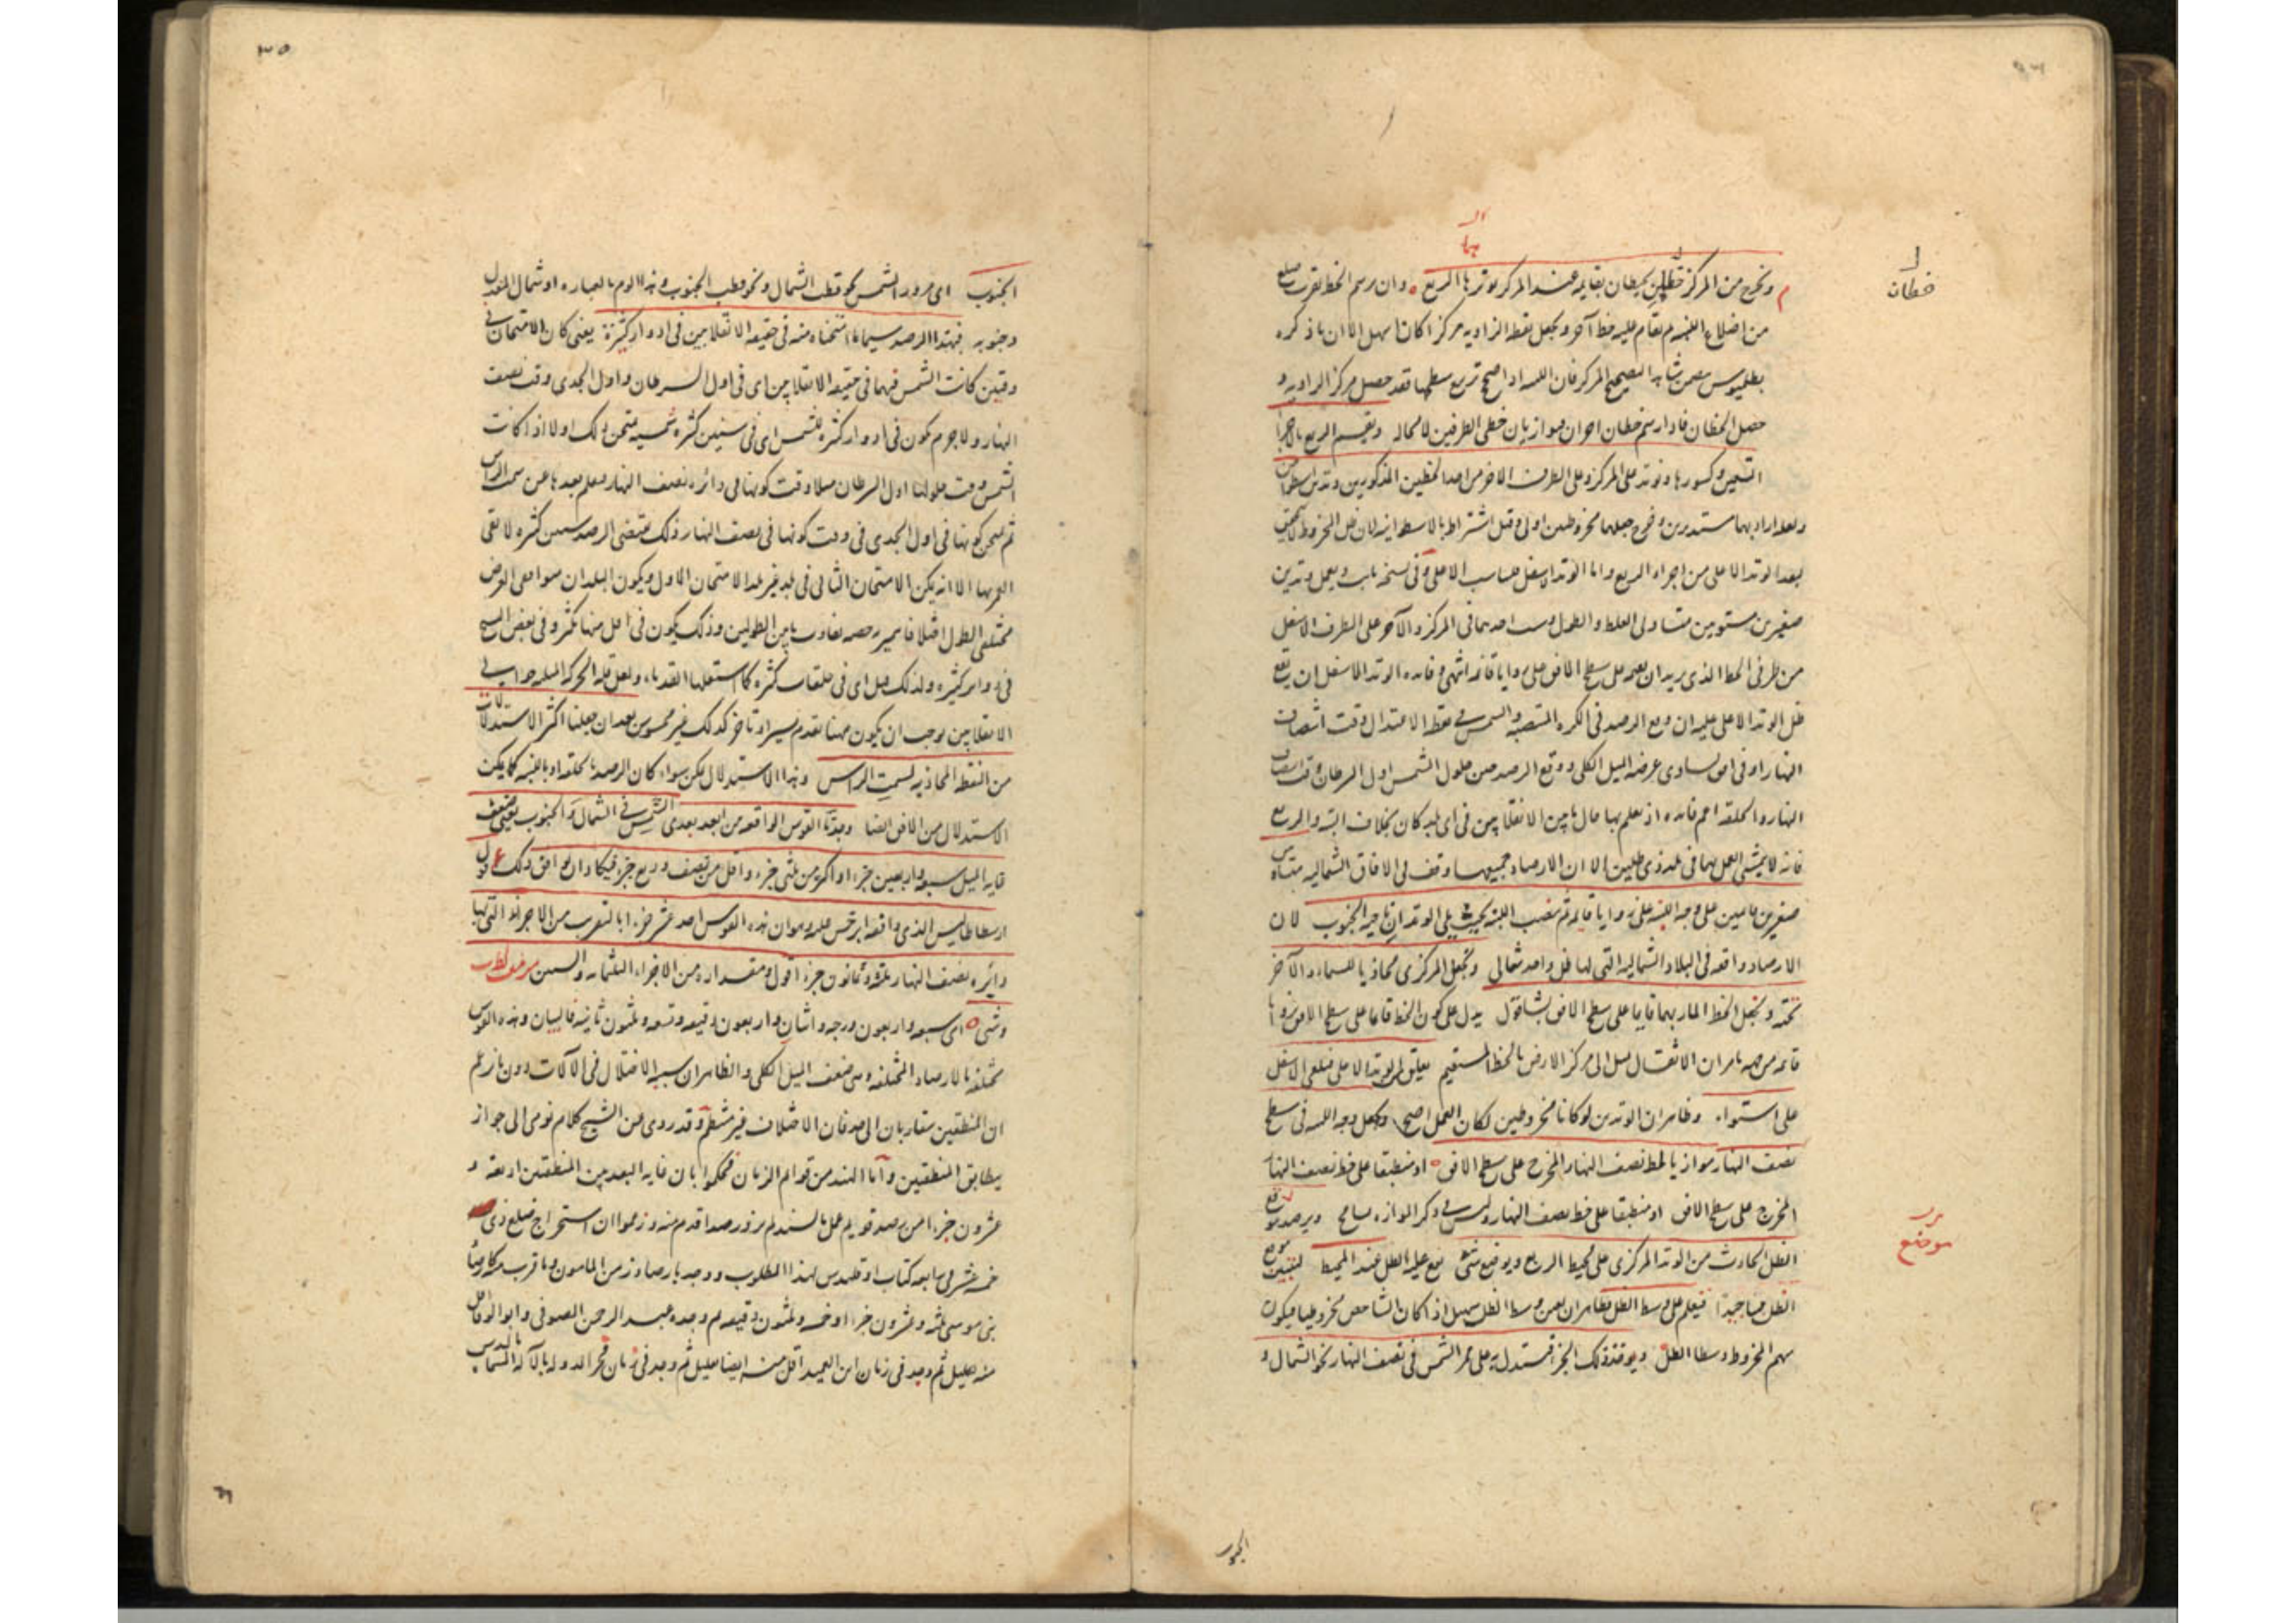 خطان
ونخرج من المركز خطين يحيطان بقايمه عند المركز يوترها الربع وان رسم الخط بقرب ضلع
من اضلاع اللبنه ثم نقام عليه خط آخر ويجعل نقطه الزاويه مركزا كان اسهل الا ان ما ذكره
بطلميوس المركز فان اللبنه اذا صح تربيع سطحها فقد حصل مركز الزاويه و
حصل الخطان فاذا رسم خطان اخران موازيان خطى الطرفين لا محاله ونقسم الربع بالاجزا
التسعين وكسورها ونوتد على المركز وعلى الطرف الاخر من احد الخطين المذكورين وتدين اسطوانيين
ولعله اراد بهما مستديرين جعلهما مخروطين اولى وقيل اشتراط بالاسطوانيه لان ظل المخروط لا
بعد الوتد الاعلى من اجزاء الربع واما الوتد الاسفل الاعلى وفى نسخه ثابت ويعمل وتدين
صغيرين مستويين متساوى الغلظ والطول احدهما فى المركز والآخر على الطرف الاسفل
من طرفى الخط الذى يريد ان على سطح الافق على زوايا قائمه انتهى وفائده الوتد الاسفل ان يقع
ظل الوتد الاعلى عليه ان وقع الرصد فى الكره المنتصبه والشمس فى نقطه الاعتدال وقت انتصاف
النهار او فى افق يساوى عرضه الميل الكلى ووقع الرصد حين حلول الشمس اول السرطان وقت انتصاف
النهار والحلقه اعم فائده اذ يعلم بها ما بين الانقلابين فى اى بلد كان بخلاف اللبنه والربع
فانه لا يتمشى العمل بهما فى بلد ذى ظلين الا ان الارصاد جميعها وقعت فى الافاق الشماليه
صغيرين قايمين على وجه اللبنه على زوايا قايمه ثم ننصب اللبنه بحيث يلى الوتدان ناحيه الجنوب لان
الارصاد واقعه فى البلاد الشماليه التى لها ظل واحد شمالى ونجعل المركزى محاذيا للسماء والآخر
تحته ونجعل الخط المار بهما قايما على سطح الافق بشاقول يدل على كون الخط قائما على سطح الافق
قائمه من ان الاثقال الى مركز الارض بالخط المستقيم يعلق الوتد الاعلى الاسفل
على استواء وظاهر ان الوتدين لو كانا مخروطين لكان العمل اصح ونجعل وجه اللبنه فى سطح
نصف النهار موازيا لخط نصف النهار المخرج على سطح الافق او منطبقا على خط نصف النهار
المخرج على سطح الافق او منطبقا على خط نصف النهار وليس فى ذكر الموازاه تسامح ويرصد موقع
موضع
الظل الحادث من الوتد المركزى على محيط الربع ويوضع شئ يقع عليه الظل عند المحيط ليتبين موضع
الظل حينا جيدا فيعلم على وسط الظل وظاهر ان تعين وسط الظل سهل اذا كان الشاخص مخروطيا فيكون
سهم المخروط وسط الظل ويوخذ ذلك الجزء فيستدل به على ممر الشمس فى نصف النهار نحو الشمال و
الجنوب
٣٥
الجنوب اى مرور الشمس نحو قطب الشمال ونحو قطب الجنوب وهذا العباره او شمال المعدل
وجنوبه فبهذا الرصد سيما ما امتحناه منه فى حقيقه الانقلابين فى ادوار كثيرة يعنى كان الامتحان فى
وقتين كانت الشمس فيهما فى حقيقه الانقلابين اى فى اول السرطان واول الجدى وقت نصف
النهار ولا جرم يكون فى ادوار كثيره للشمس اى فى سنين كثيره شمسيه يمتحن ذلك اولا اذا كانت
الشمس وقت حلولها اول السرطان مثلا وقت كونها فى دائره نصف النهار فيعلم بعدها عن سمت الراس
ثم يتحرى كونها فى اول الجدى فى وقت كونها فى نصف النهار وذلك يقتضى الرصد سنين كثيره لا
الا ان يكون الامتحان الثانى فى بلد غير بلد الامتحان الاول ويكون البلدان متوافقى العرض
مختلفى الطول اختلافا تفاوت ما بين الطولين وذلك يكون فى اقل منها بكثير وفى بعض النسخ
فى ادوار كثيره ولذلك قيل اى فى حلقات كثيره كما استعملها القدماء ولعل قله الحركه الميليه حوالى
الانقلابين يوجب ان يكون مهما تقدم يسيرا او تاخر كذلك غير محسوس بعد ان جعلنا اكثر الاستدلالات
من النقطه المحاذيه لسمت الراس وهذا الاستدلال يمكن سواء كان الرصد بالحلقه او باللبنه كما يمكن
الاستدلال من الافق ايضا وجدنا القوس الواقعه من ابعد بعدى الشمس فى الشمال والجنوب يعنى ضعف
غايه الميل سبعه واربعين جزءا واكثر من ثلثى جزء واقل من نصف وربع جزء فيكاد ان يوافق ذلك قول
ارسطاطاليس الذى واقفه ابرخس عليه وهو ان هذه القوس احد عشر جزءا بالتقريب من الاجزاء التى بها
دايره نصف النهار ثلثه وثمانون جزءا اقول ومقداره من الاجزاء الثلثمائه والستين
وشى اى سبعه واربعون درجه واثنان واربعون دقيقه وتسعه وثلثون ثانيه وهذه القوس
مختلفه بالارصاد المختلفه وهى ضعف الميل الكلى والظاهر ان سببه الاختلال فى الآلات دون ما زعم
ان المنطقتين متقاربان الى فان الاختلاف غير منتظم وقد روى عن الشيخ كلام يومى الى جواز
يطابق المنطقتين واما الهند من قوام الزمان فحكموا بان غايه البعد بين المنطقتين اربعه و
عشرون جزءا رصد قديم عمل بالهند لم يزد رصدا اقدم منه وزعموا ان استخراج ضلع ذى
خمسه عشر فى رابعه كتاب اوقليدس لهذا المطلوب ووجد بارصاد زمن المامون وما قرب منه كارصاد
بنى موسى ثلثه وعشرون جزءا وخمسه وثلثون دقيقه ثم وجده عبد الرحمن الصوفى وابو الوفا اقل
منه بقليل ثم وجد فى زمان ابن العميد اقل منه ايضا بقليل ثم وجد فى زمان فخر الدوله بالآله